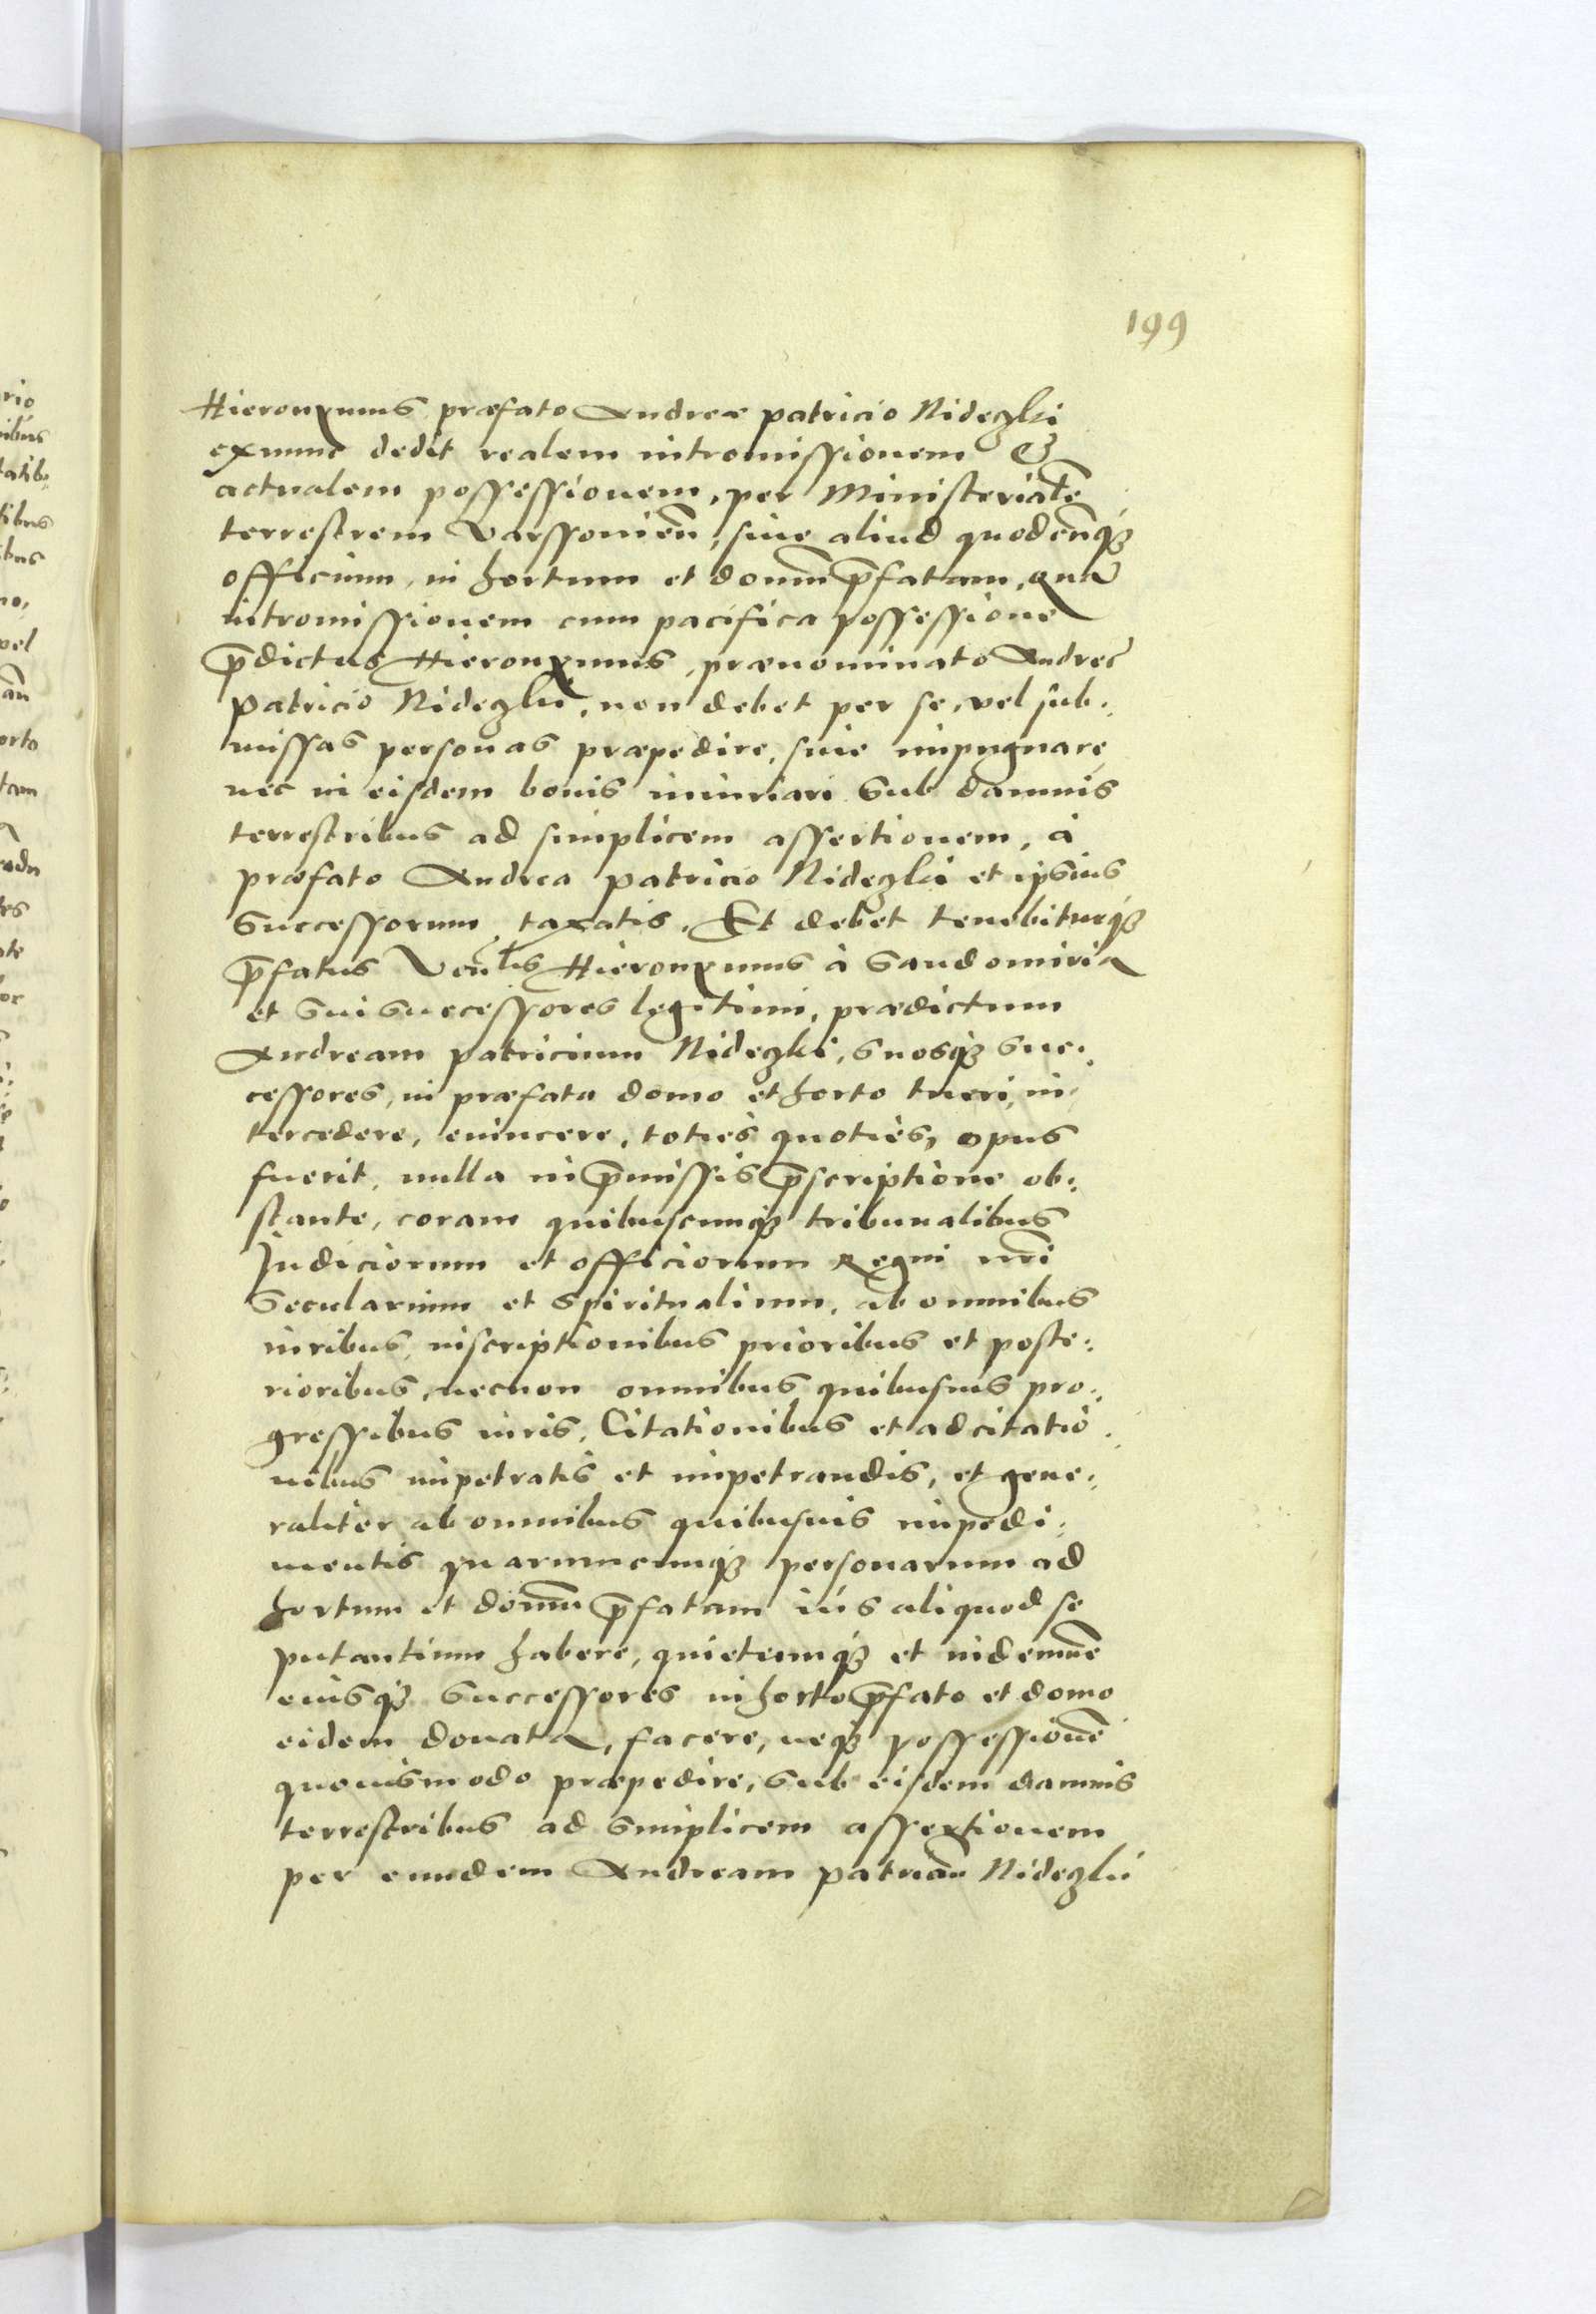 199
Hieronymus præfato Andreæ patricio Nideczki
exnunc dedit realem intromissionem &
actualem possessionem, per Ministerialẽ
terrestrem Varssovieñ, siue aliud quodcũqꝫ
officium, in hortum et domũ p̃fatam, quã
intromissionem cum pacifica possessione
p̃dictus Hieronymus, prænominato Andreę
patricio Nideczki, non debet per se, vel sub:
missas personas præpedire, siue impugnare,
nec in eisdem bonis iniuriari sub damnis
terrestribus ad simplicem assertionem, à
præfato Andrea patricio Nideczki et ipsius
successorum taxatis. Et debet tenebiturqꝫ
p̃fatus Veñlis Hieronymus à Sandomiria
et sui successores legitimi, prædictum
Andream patricium Nideczki, suosqꝫ suc:
cessores, in præfata domo et horto tueri, in:
tercedere, euincere, toties quoties, opus
fuerit, nulla in p̃missis p̃scriptione ob:
stante, coram quibuscunqꝫ tribunalibus
Judiciorum et officiorum Regni nr̃i
secularium et spiritualium, ab omnibus
iuribus, inscriptionibus prioribus et poste:
rioribus, necnon omnibus quibusuis pro:
gressibus iuris, Citationibus et adcitatio:
nibus impetratis et impetrandis, et gene:
raliter ab omnibus quibusuis impedi:
mentis quarumcunqꝫ personarum ad
hortum et domũ p̃fatam iús aliquod se
putantium habere, quietumqꝫ et indemnẽ
eiusqꝫ successores in horto p̃fato et domo
eidem donata, facere, neqꝫ possessionẽ
quouismodo præpedire, sub eisdem damnis
terrestribus ad simplicem assertionem
per eundem Andream patriciũ Nideczki